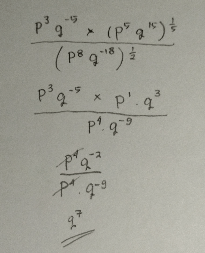 p³ q⁻⁵ × (p⁵ q¹⁵)^(1/5)
(p⁸ q⁻¹⁸)^(1/2)
p³ q⁻⁵ × p¹ · q³
p⁴ · q⁻⁹
p⁴ q⁻²
p⁴ · q⁻⁹
q⁷